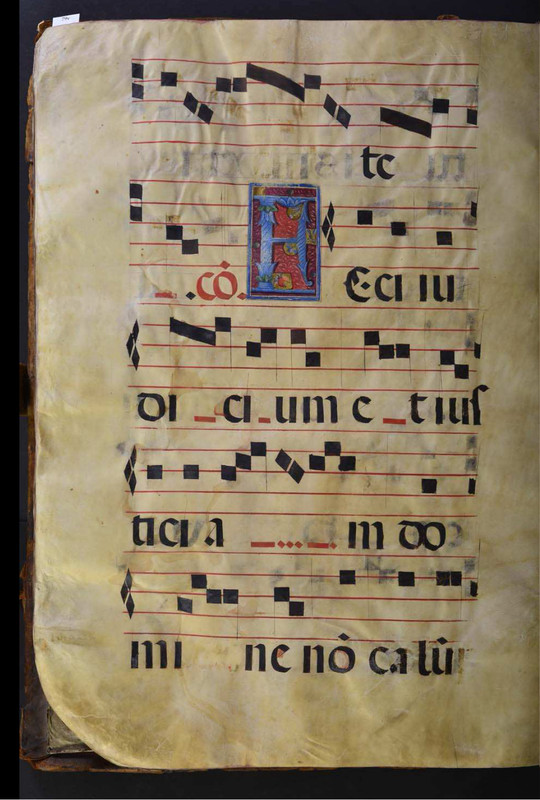 te
.cō. F Eci iu
di ci um e t ius
tici a m do
mi ne nō ca lū